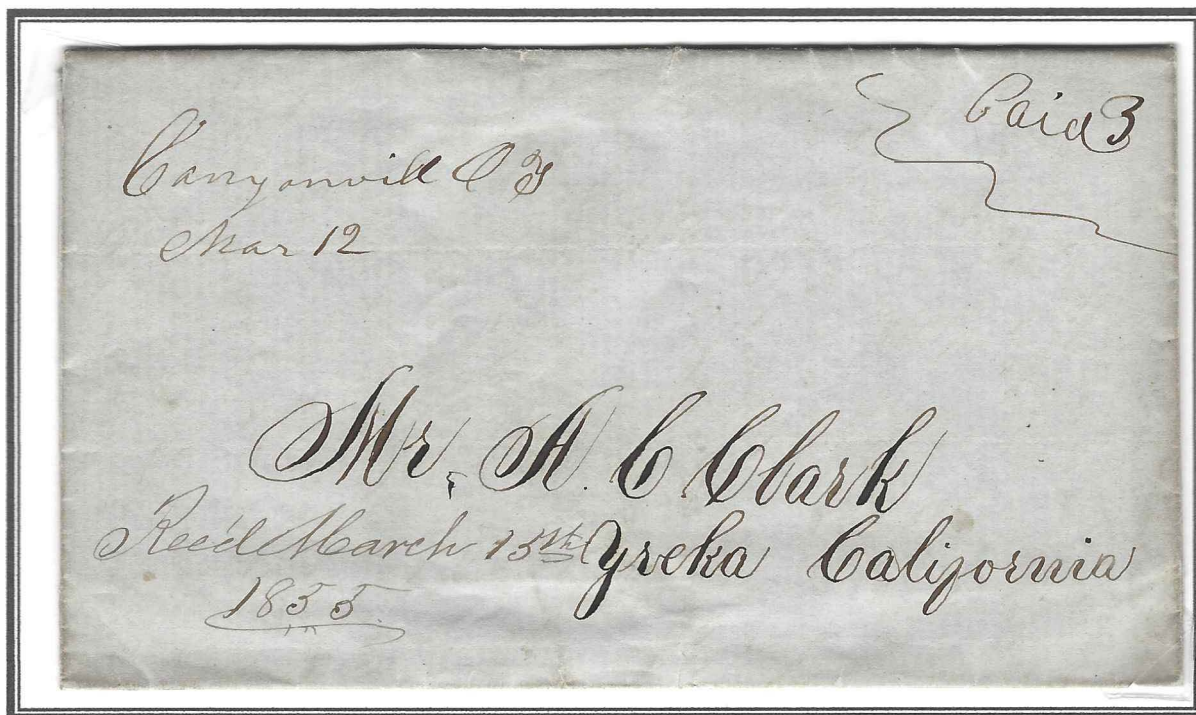 Paid 3
Canyonvill O T
Mar 12
Mr. A. C Clark
Yreka California
Rec'd March 15th
1855.